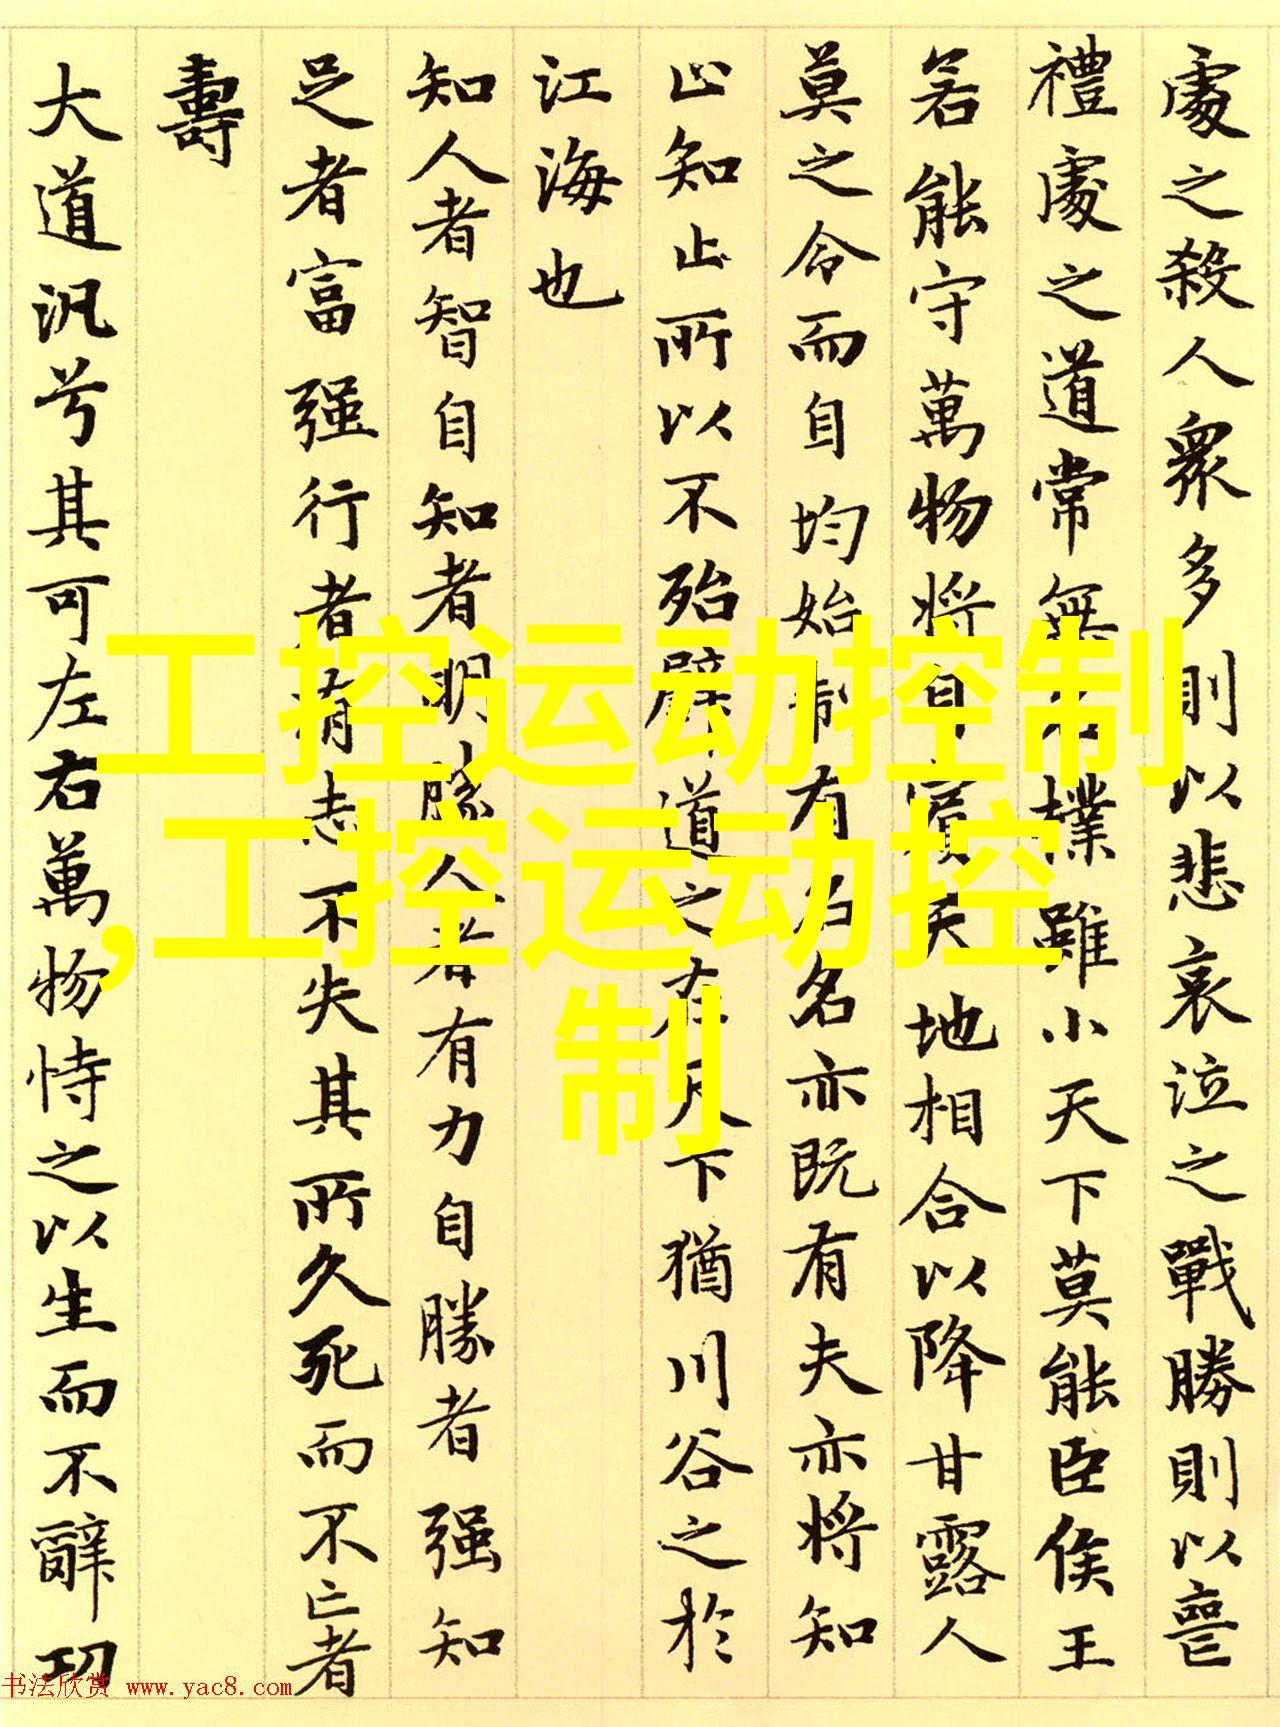 處之殺人衆多則以悲哀泣之戰勝則以喪
禮處之道常無名樸雖小天下莫能臣侯王
若能守萬物將自賓天地相合以降甘露人
莫之令而自均始制有名名亦既有夫亦将知
止知止所以不殆譬道之在天下猶川谷之於
江海也
知人者智自知者明勝人者有力自勝者强知
足者富强行者有志不失其所久死而不亡者
壽
大道汎兮其可左右萬物恃之以生而不辭功
工控运动控制
,工控运动控
制
书法欣赏 www.yac8.com